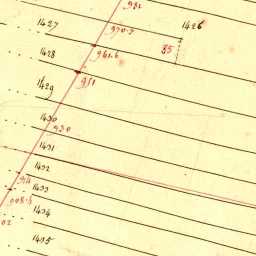 981
1427
1426
970.7
85
1428
961.6
951
1429
1430
930
1431
1432
1433
1434
02
1435